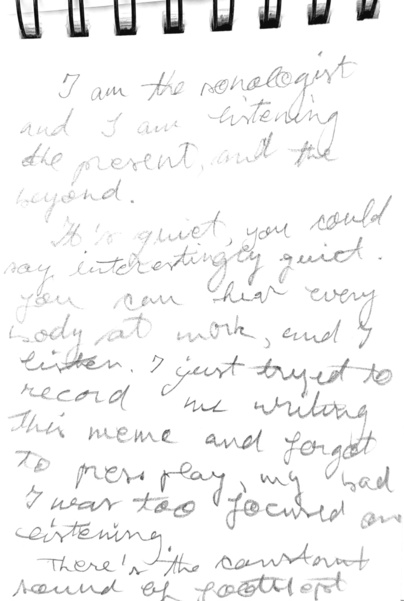 I am the sonologist
and I am listening
the present, and the
beyond.
It's quiet, you could
say interestingly quiet.
You can hear every
body at work, and I
listen. I just tryed to
record me writing
this meme and forgot
to press play, my bad
I was too focused on
listening.
There's the constant
sound of